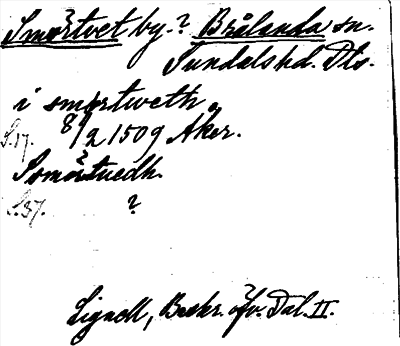 Smørtvet by. ? Brålanda sn.
Sundals hd. Dls.
i smørtweth
S. 17. 8/9 1509 Åker.
Ssmörtuedh.
S. 37. ?
Lignell, Beskr. öfv. Dal. II.